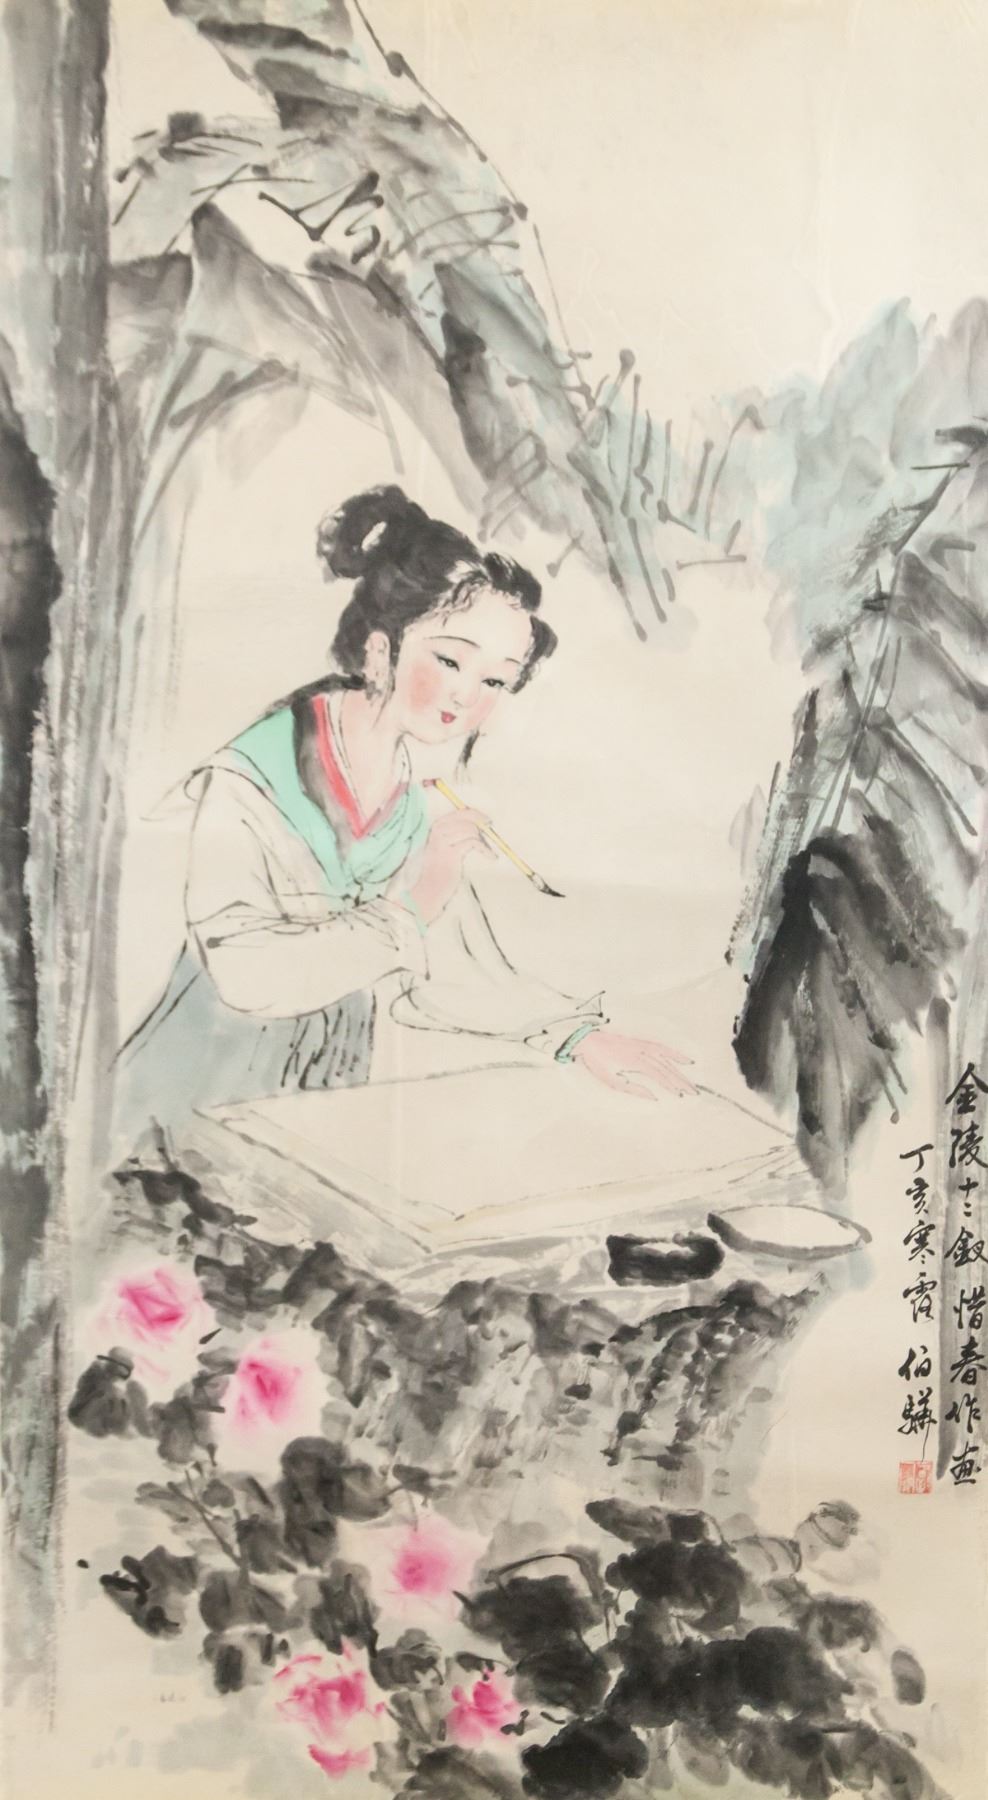 金陵十二釵惜春作画
丁亥寒露 伯驊